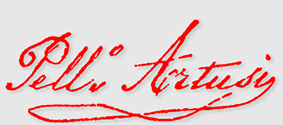 Pell° Artusi